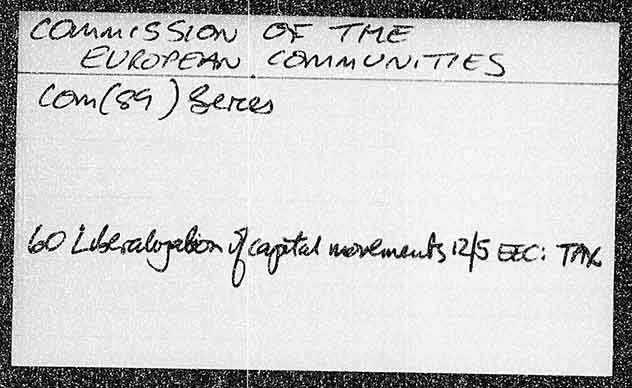 COMMISSION OF THE
EUROPEAN COMMUNITIES
COM(89) Series
60 Liberalization of capital movements 12/5 EEC: TAX